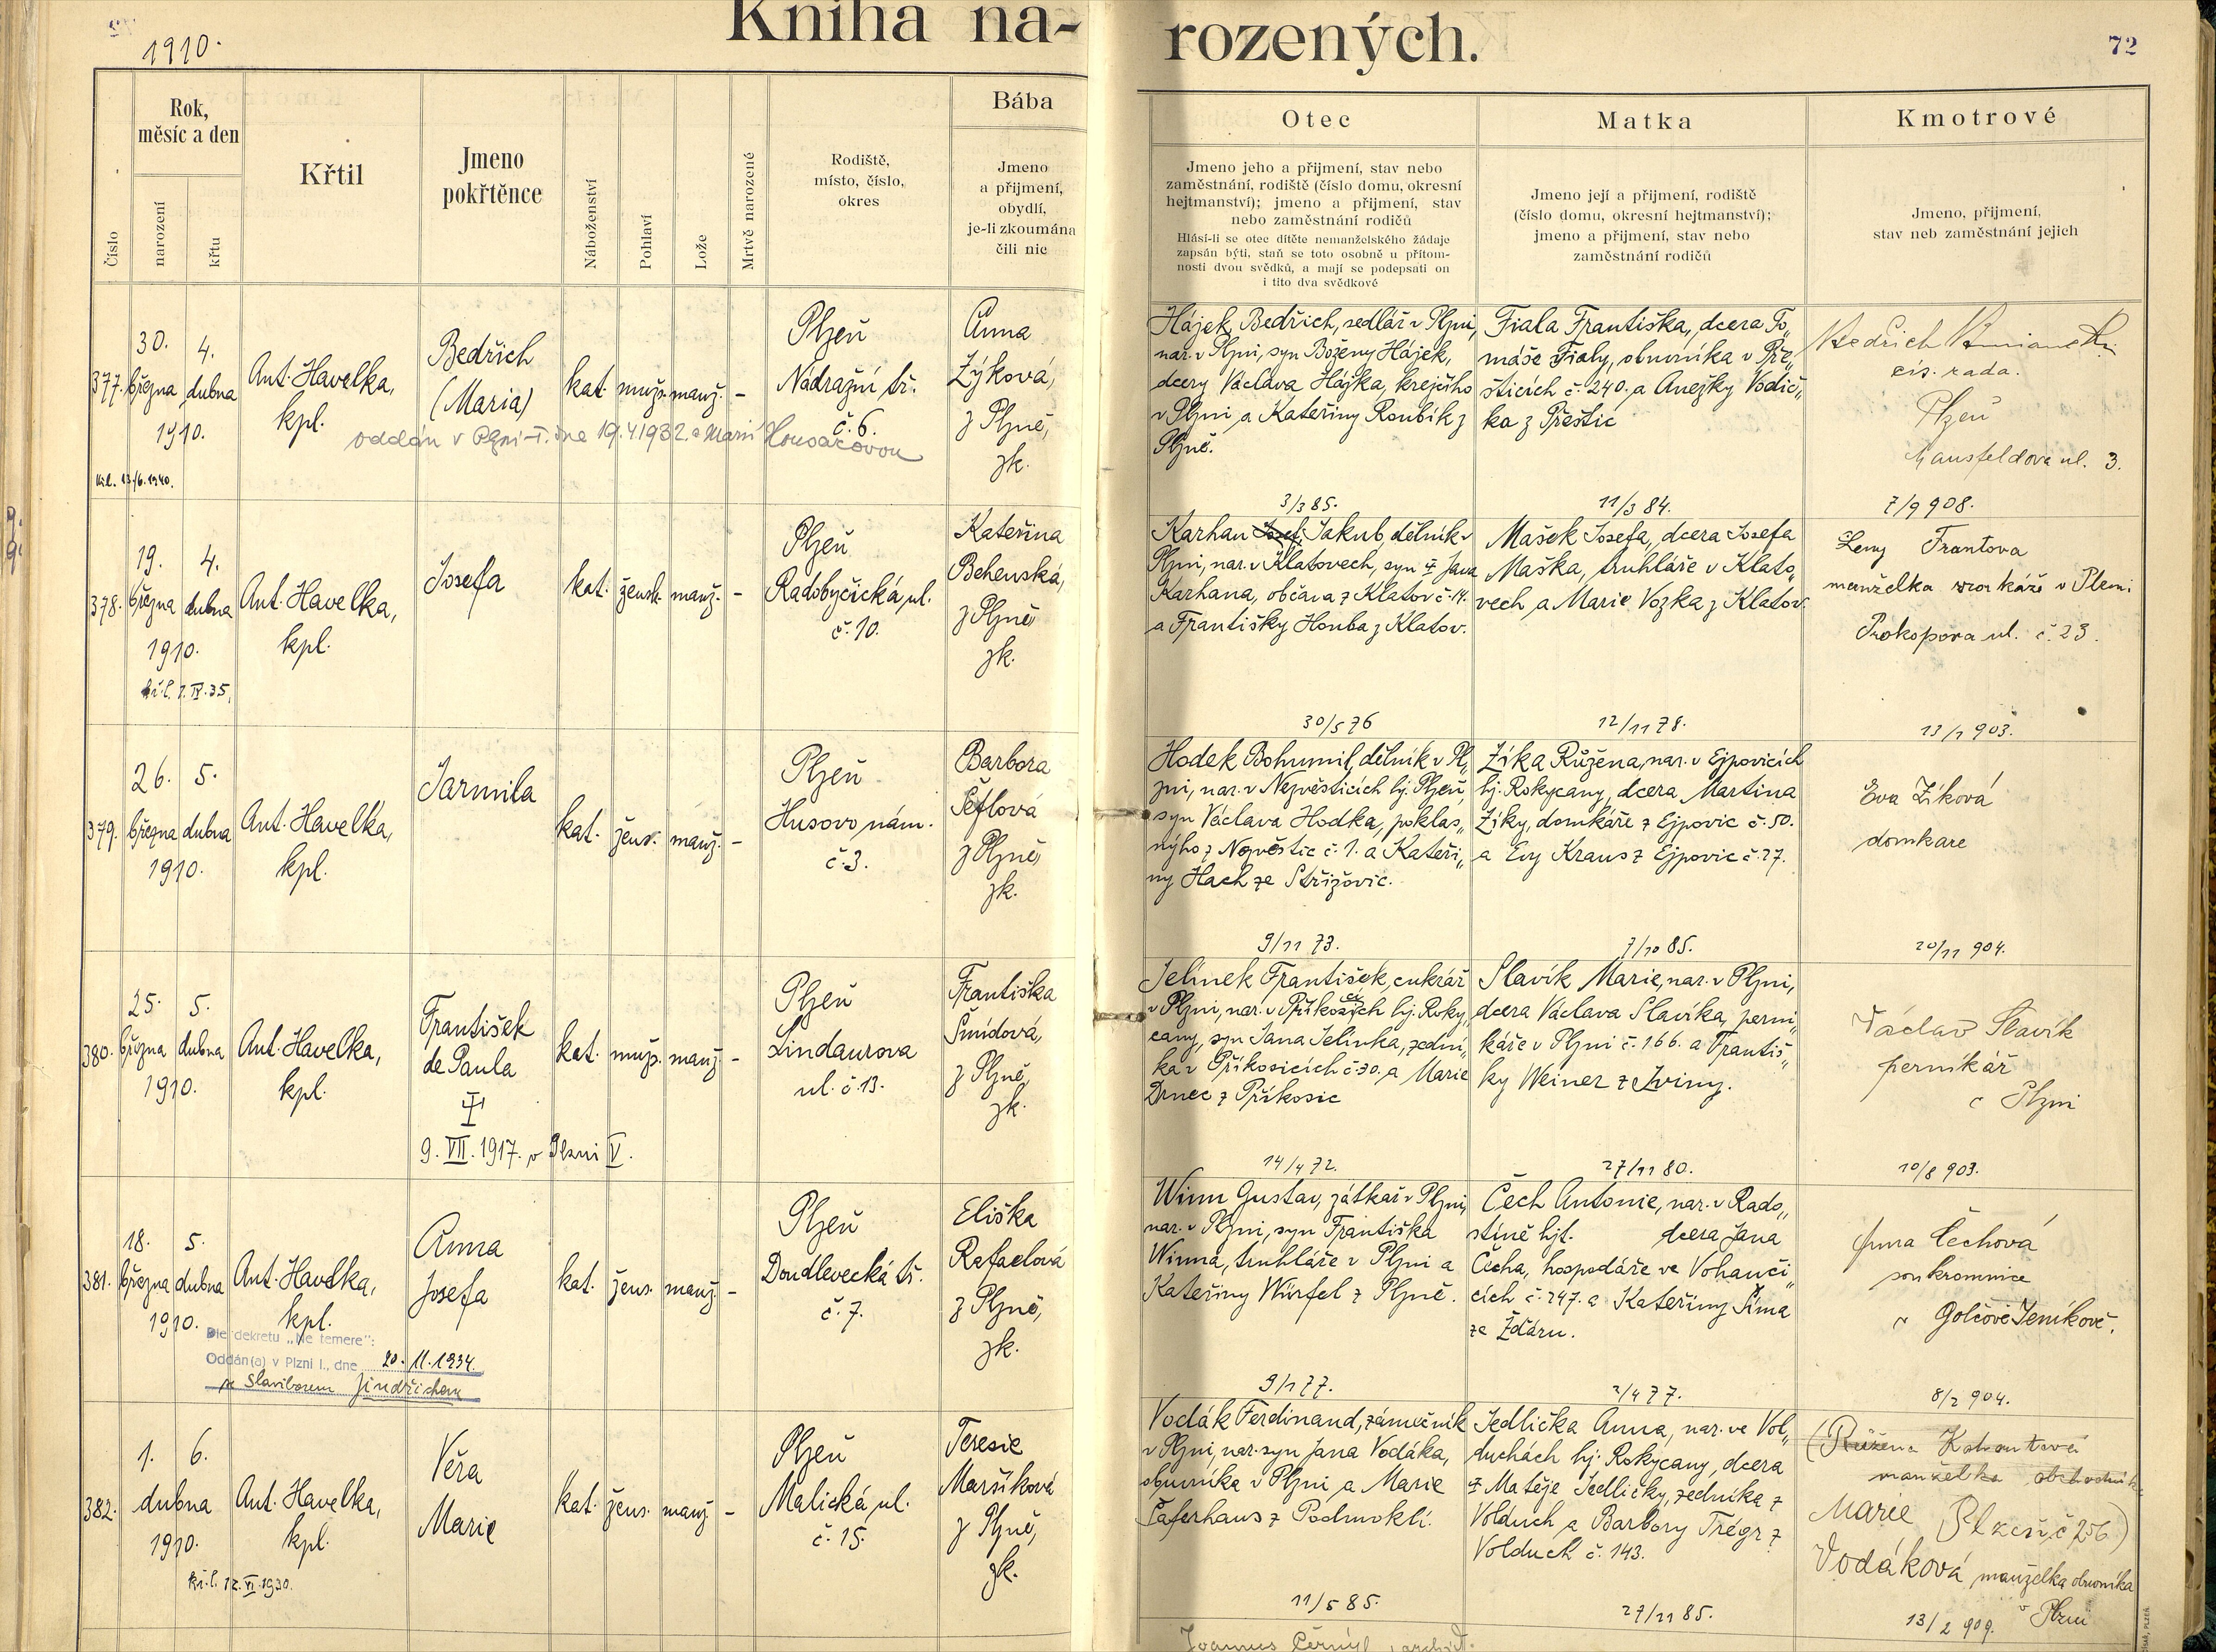 1910.
Kniha na-
rozených.
72
Číslo
Rok,
měsíc a den
narození
křtu
Křtil
Jmeno
pokřtěnce
Náboženství
Pohlaví
Lože
Mrtvě narozené
Rodiště,
místo, číslo,
okres
Bába
Jmeno
a přijmení,
obydlí,
je-li zkoumána
čili nic
Otec
Jmeno jeho a přijmení, stav nebo
zaměstnání, rodiště (číslo domu, okresní
hejtmanství); jmeno a přijmení, stav
nebo zaměstnání rodičů
Hlásí-li se otec dítěte nemanželského žádaje
zapsán býti, staň se toto osobně u přítom-
nosti dvou svědků, a mají se podepsati on
i tito dva svědkové
Matka
Jmeno její a přijmení, rodiště
(číslo domu, okresní hejtmanství);
jmeno a přijmení, stav nebo
zaměstnání rodičů
Kmotrové
Jmeno, přijmení,
stav neb zaměstnání jejich
377.
30. března
4. dubna
1910.
13/6.1940.
Ant. Havelka,
kpl.
Bedřich
(Maria)
kat. muž. manž. -
Plzeň
Nádražní tř.
č. 6.
oddán v Plzni-I. dne 19.4.1932 s Marií Housarovou
Anna
Zýková,
z Plzně,
zk.
Hájek Bedřich, sedlář v Plzni,
nar. v Plzni, syn Boženy Hájek,
dcery Václava Hájka, krejčího
v Plzni a Kateřiny Roubík z
Plzně.
3/3 85.
Fiala Františka, dcera To„
máše Fialy, obuvníka v Pře„
šticích č. 240. a Anežky Vodič„
ka z Přeštic
11/3 84.
Bedřich
cís. rada.
Plzeň
Mansfeldova ul. 3.
7/9 908.
378.
19. března
4. dubna
1910.
7. IV. 35.
Ant. Havelka,
kpl.
Josefa
kat. žensk. manž. -
Plzeň
Radobyčická ul.
č. 10.
Kateřina
Behenská,
z Plzně
zk.
Karhan Josef Jakub, dělník v
Plzni, nar. v Klatovech, syn † Jana
Karhana, občana z Klatov č. 14.
a Františky Houba z Klatov.
30/5 76
Mašek Josefa, dcera Josefa
Maška, truhláře v Klato„
vech a Marie Vozka z Klatov.
12/11 78.
Frantova
manželka
Prokopova ul. č. 23.
13/1 903.
379.
26. března
5. dubna
1910.
Ant. Havelka,
kpl.
Jarmila
kat. žens. manž. -
Plzeň
Husovo nám.
č. 3.
Barbora
Šeflová
z Plzně,
zk.
Hodek Bohumil, dělník v Pl„
zni, nar. v Nezvěsticích hj. Plzeň,
syn Václava Hodka, poklas„
ného z Nezvěstic č. 1. a Kateři„
ny Hach ze Střížovic.
9/11 73.
Zíka Růžena, nar. v Ejpovicích
hj. Rokycany, dcera Martina
Zíky, domkáře z Ejpovic č. 50.
a Evy Kraus z Ejpovic č. 27.
7/10 85.
Eva Zíková
domkare
20/11 904.
380.
25. března
5. dubna
1910.
Ant. Havelka,
kpl.
František
de Paula
†
9. VII. 1917. v Plzni V.
kat. muž. manž. -
Plzeň
Lindaurova
ul. č. 13.
Františka
Šmídová,
z Plzně,
zk.
Jelínek František, cukrář
v Plzni, nar. v Příkosicích hj. Roky„
cany, syn Jana Jelínka, zední„
ka v Příkosicích č. 30. a Marie
Drnec z Příkosic
14/4 72.
Slavík Marie, nar. v Plzni,
dcera Václava Slavíka, perní„
káře v Plzni č. 166. a Františ„
ky Weiner z Lviny.
27/11 80.
Václav Slavík
perníkář
v Plzni
10/8 903.
381.
18. března
5. dubna
1910.
Ant. Havelka,
kpl.
Dle dekretu „Ne temere":
Oddán(a) v Plzni I., dne 20. 11. 1934.
se Slaviborem Jindřichem
Anna
Josefa
kat. žens. manž. -
Plzeň
Doudlevecká tř.
č. 7.
Eliška
Rafaelová
z Plzně,
zk.
Winn Gustav, zátkař v Plzni,
nar. v Plzni, syn Františka
Winna, truhláře v Plzni a
Kateřiny Würfel z Plzně.
9/1 77.
Čech Antonie, nar. v Rado„
stíně hjt. dcera Jana
Čecha, hospodáře ve Vohanči„
cích č. 247. a Kateřiny Šíma
ze Žďáru.
2/4 77.
Anna Čechová
soukromnice
v Golčově Jeníkově.
8/2 904.
382.
1. 6.
dubna
1910.
12. VI. 1930.
Ant. Havelka,
kpl.
Věra
Marie
kat. žens. manž. -
Plzeň
Malická ul.
č. 15.
Teresie
Maršíková
z Plzně,
zk.
Vodák Ferdinand, zámečník
v Plzni, nar. syn Jana Vodáka,
obuvníka v Plzni a Marie
Šaferhans z Podmoklí.
11/5 85.
Jedlička Anna, nar. ve Vol„
duchách hj. Rokycany, dcera
† Matěje Jedličky, zedníka z
Volduch a Barbory Trégr z
Volduch č. 143.
27/11 85.
(Růžena Kohoutová
manželka obchodník
Plzeň, č. 256)
Marie
Vodáková manželka obuvníka
v Plzni
13/2 909.